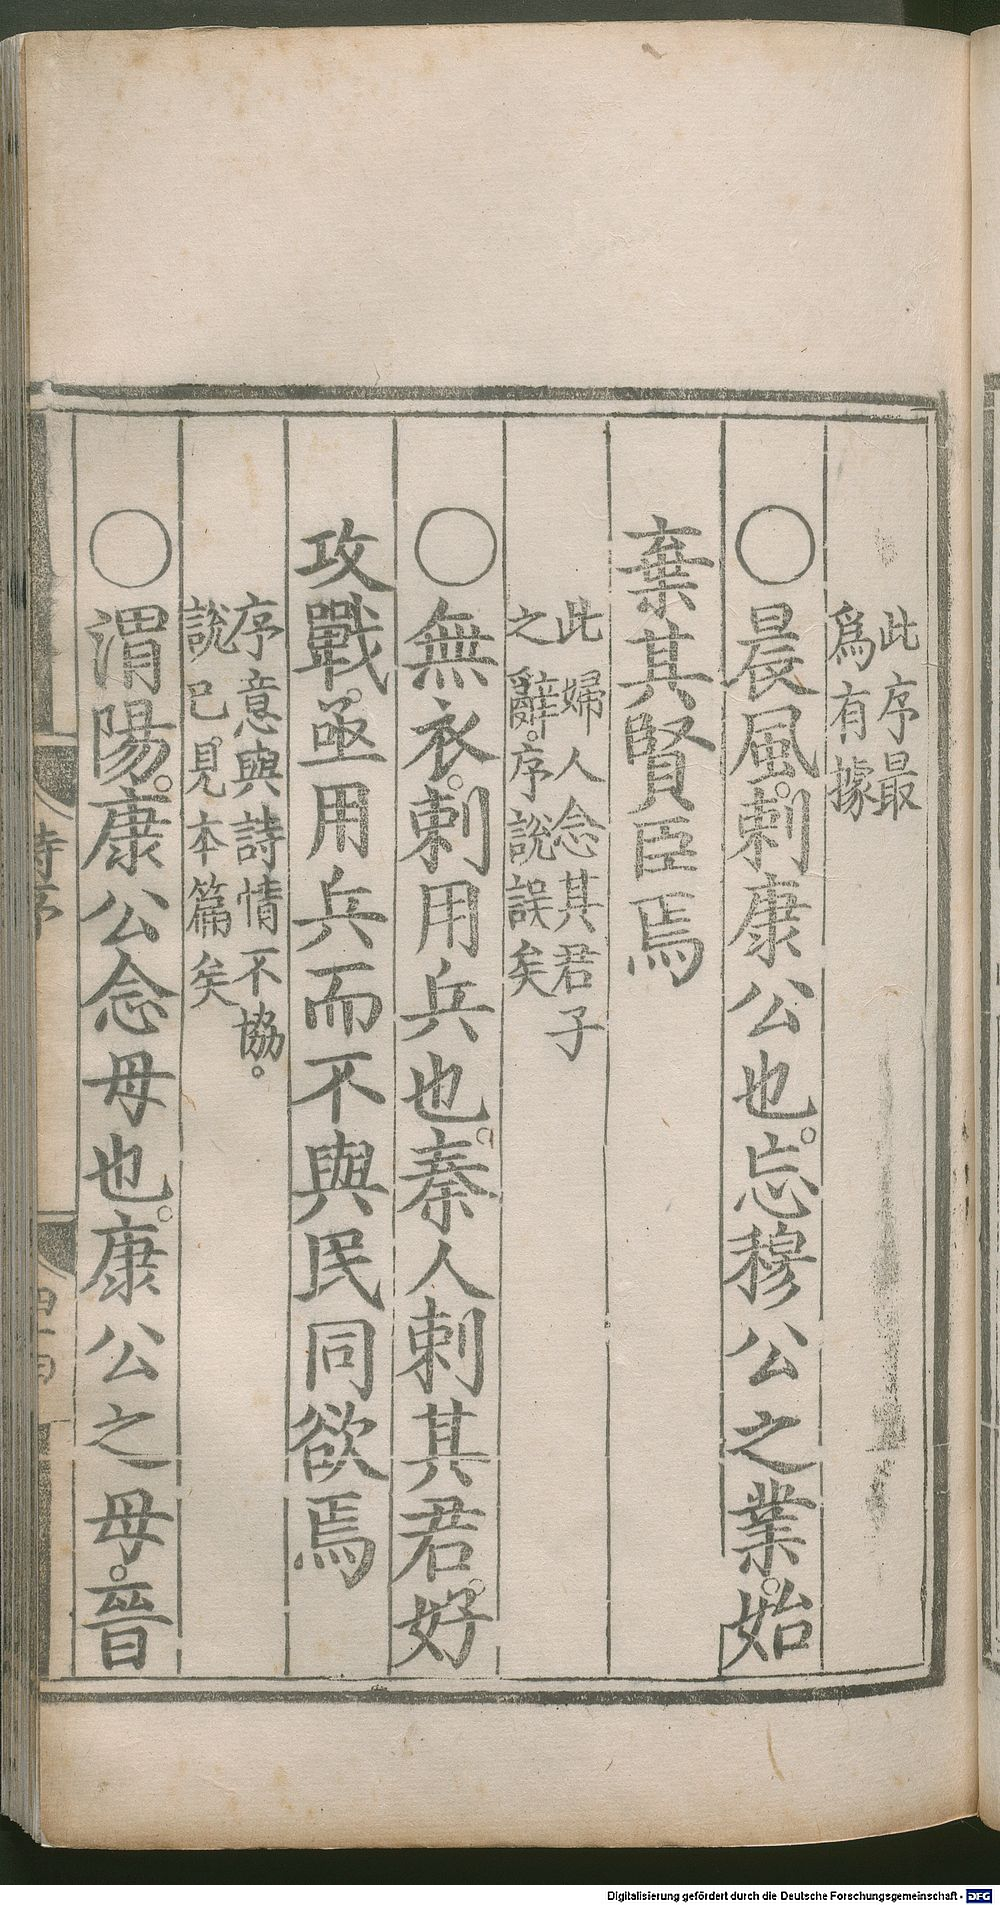 此序最
爲有據
○晨風。刺康公也。忘穆公之業。始
棄其賢臣焉
此婦人念其君子
之辭。序說誤矣
○無衣。刺用兵也。秦人刺其君。好
攻戰。亟用兵而不與民同欲焉
序意與詩情不協。
說已。見本篇矣
○渭陽。康公念母也。康公之母。晉
詩序
Digitalisierung gefördert durch die Deutsche Forschungsgemeinschaft - DFG